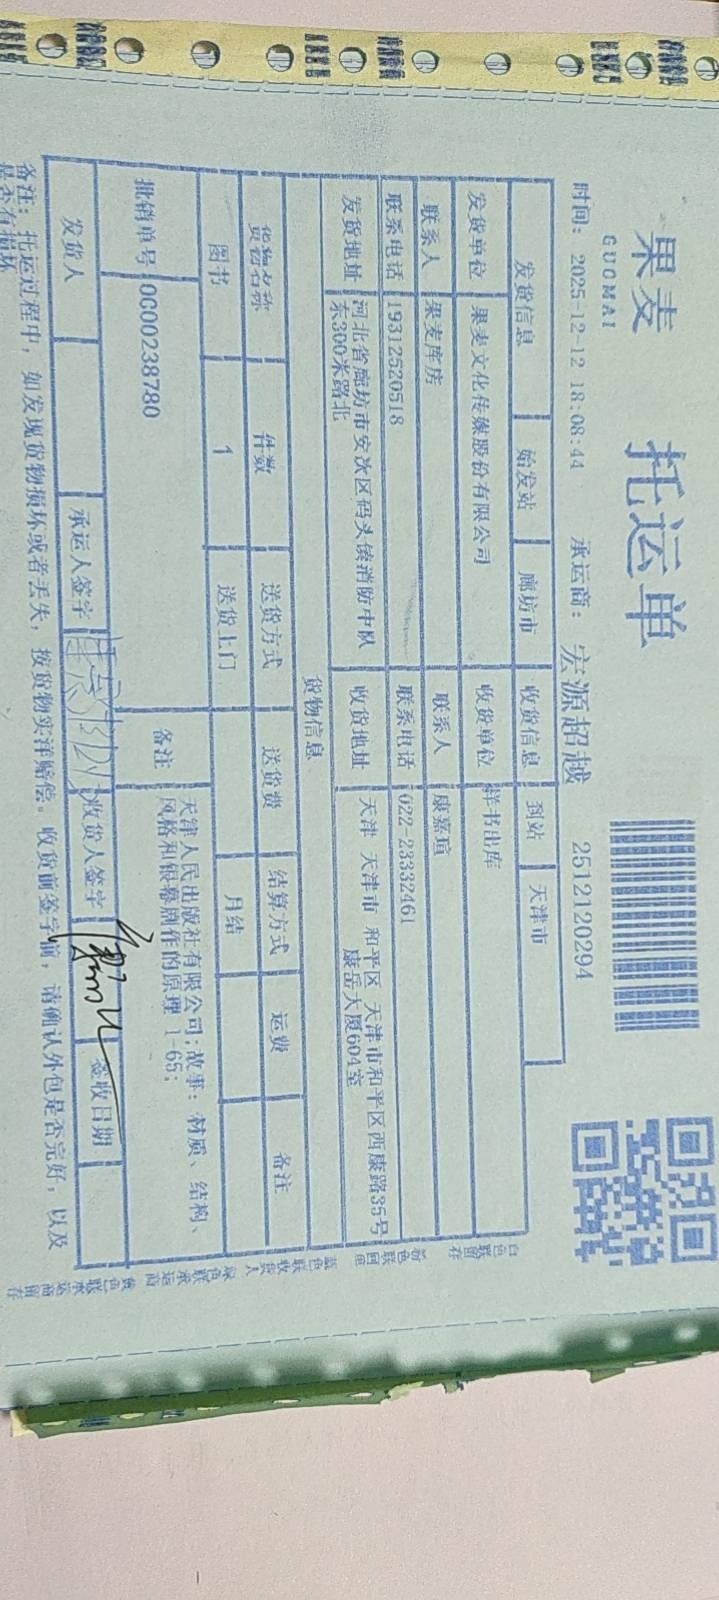 果麦
GUOMAI
托运单
时间: 2025-12-12 18:08:44 承运商: 宏源超越 2512120294
发货信息 始发站 廊坊市 收货信息 到站 天津市
发货单位 果麦文化传媒股份有限公司 收货单位 样书出库
联系人 果麦库房 联系人 康嘉瑄
联系电话 19312520518 联系电话 022-23332461
发货地址 河北省廊坊市安次区码头镇消防中队 收货地址 天津 天津市 和平区 天津市和平区西康路35号
东300米路北 康岳大厦604室
货物信息
货物名称 件数 送货方式 送货费 结算方式 运费 备注
图书 1 送货上门 月结
批销单号:0000238780 备注 天津人民出版社有限公司;故事: 材质、结构、
风格和银幕剧作的原理 1-65;
发货人 承运人签字 收货人签字 签收日期
备注: 托运过程中, 如发现货物损坏或者丢失, 按货物实洋赔偿。收货前签字前, 请确认外包是否完好, 以及
是否有损坏
白色联留存
蓝色联收货人
绿色联承运商
黄色联承运商留存